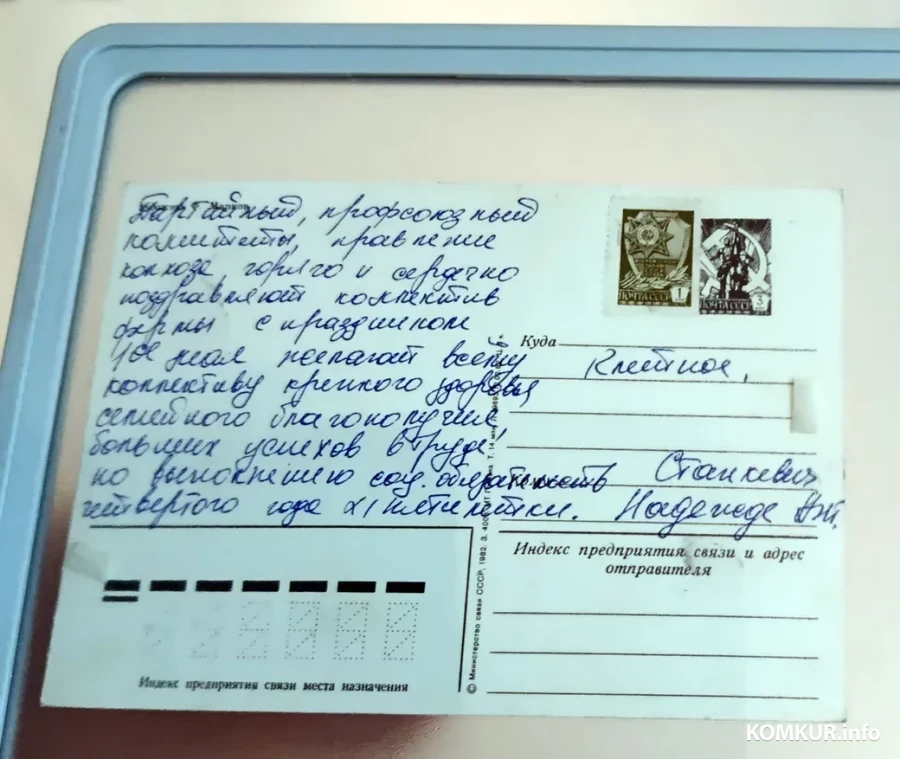 Партийный, профсоюзный
комитеты, правление
колхоза, горячо и сердечно
поздравляют коллектив
фермы с праздником
1ое мая желают всему
коллективу крепкого здоровья
семейного благополучия
больших успехов в труде
по выполнению соц. обязательств
четвертого года XI пятилетки.
ПОЧТА СССР 1
ПОЧТА СССР 3
Куда
Клетное,
Станкевич
Надежде Ант.
Индекс предприятия связи и адрес
отправителя
Индекс предприятия связи места назначения
© Министерство связи СССР, 1982. З.
KOMKUR.info